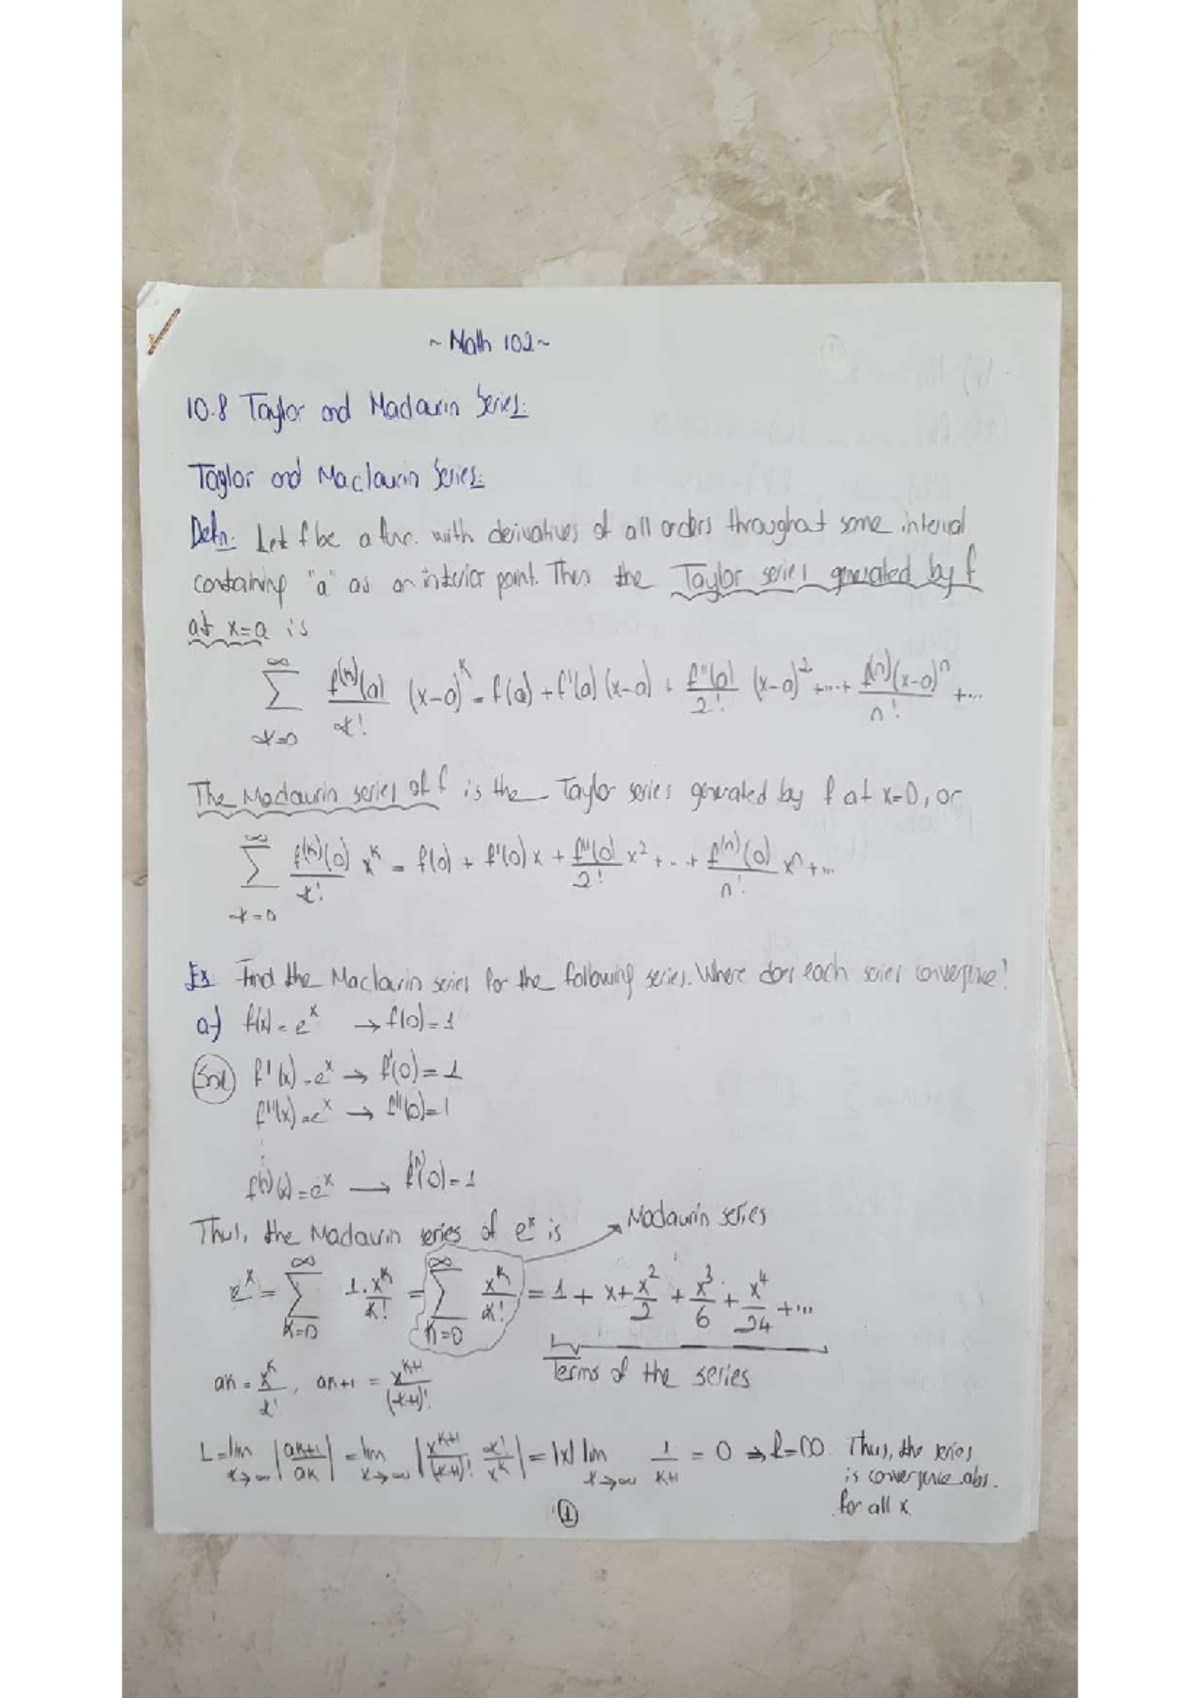 ~ Math 102 ~
10.8 Taylor and Maclaurin Series:
Taylor and Maclaurin Series:
Defn: Let f be a func. with derivatives of all orders throughout some interval
containing "a" as an interior point. Then the Taylor series generated by f
at x=a is
∑_{k=0}^{∞} f^(k)(a)/k! (x-a)^k = f(a) + f'(a)(x-a) + f''(a)/2! (x-a)^2 + ... + f^(n)(x-a)^n/n! + ...
The Maclaurin series of f is the Taylor series generated by f at x=0, or
∑_{k=0}^{∞} f^(k)(0)/k! x^k = f(0) + f'(0)x + f''(0)/2! x^2 + .. + f^(n)(0)/n! x^n + ...
Ex: Find the Maclaurin series for the following series. Where does each series convergence?
a-) f(x) = e^x → f(0) = 1
Sol f'(x) = e^x → f'(0) = 1
f''(x) = e^x → f''(0) = 1
f^(n)(x) = e^x → f^(n)(0) = 1
Thus, the Maclaurin series of e^x is → Maclaurin series
e^x = ∑_{k=0}^{∞} 1·x^k/k! = ∑_{k=0}^{∞} x^k/k! = 1 + x + x^2/2 + x^3/6 + x^4/24 + ...
Terms of the series
ak = x^k/k!, ak+1 = x^{k+1}/(k+1)!
L = lim_{k→∞} |ak+1/ak| = lim_{k→∞} |x^{k+1}/(k+1)! k!/x^k| = |x| lim_{k→∞} 1/(k+1) = 0 ⇒ R=∞. Thus, the series
is convergence abs.
for all x
1